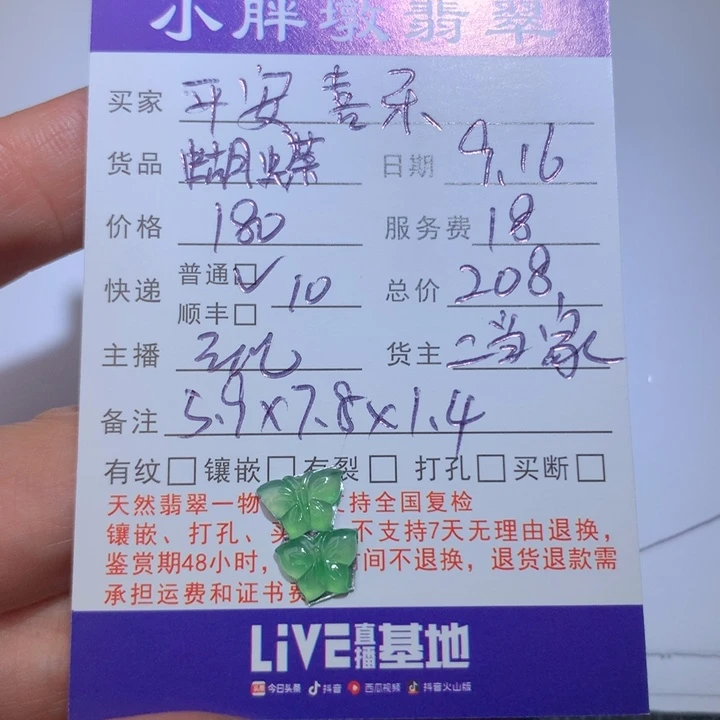 小胖墩翡翠
买家 平安喜乐
货品 蝴蝶 日期 9.16
价格 180 服务费 18
快递 普通 10 总价 208
顺丰
主播 货主 二当家
备注 5.9×7.8×1.4
有纹 镶嵌 有裂 打孔 买断
天然翡翠一物 支持全国复检
镶嵌、打孔、买 不支持7天无理由退换,
鉴赏期48小时, 间不退换,退货退款需
承担运费和证书费
LiVE直播基地
今日头条 抖音 西瓜视频 抖音火山版